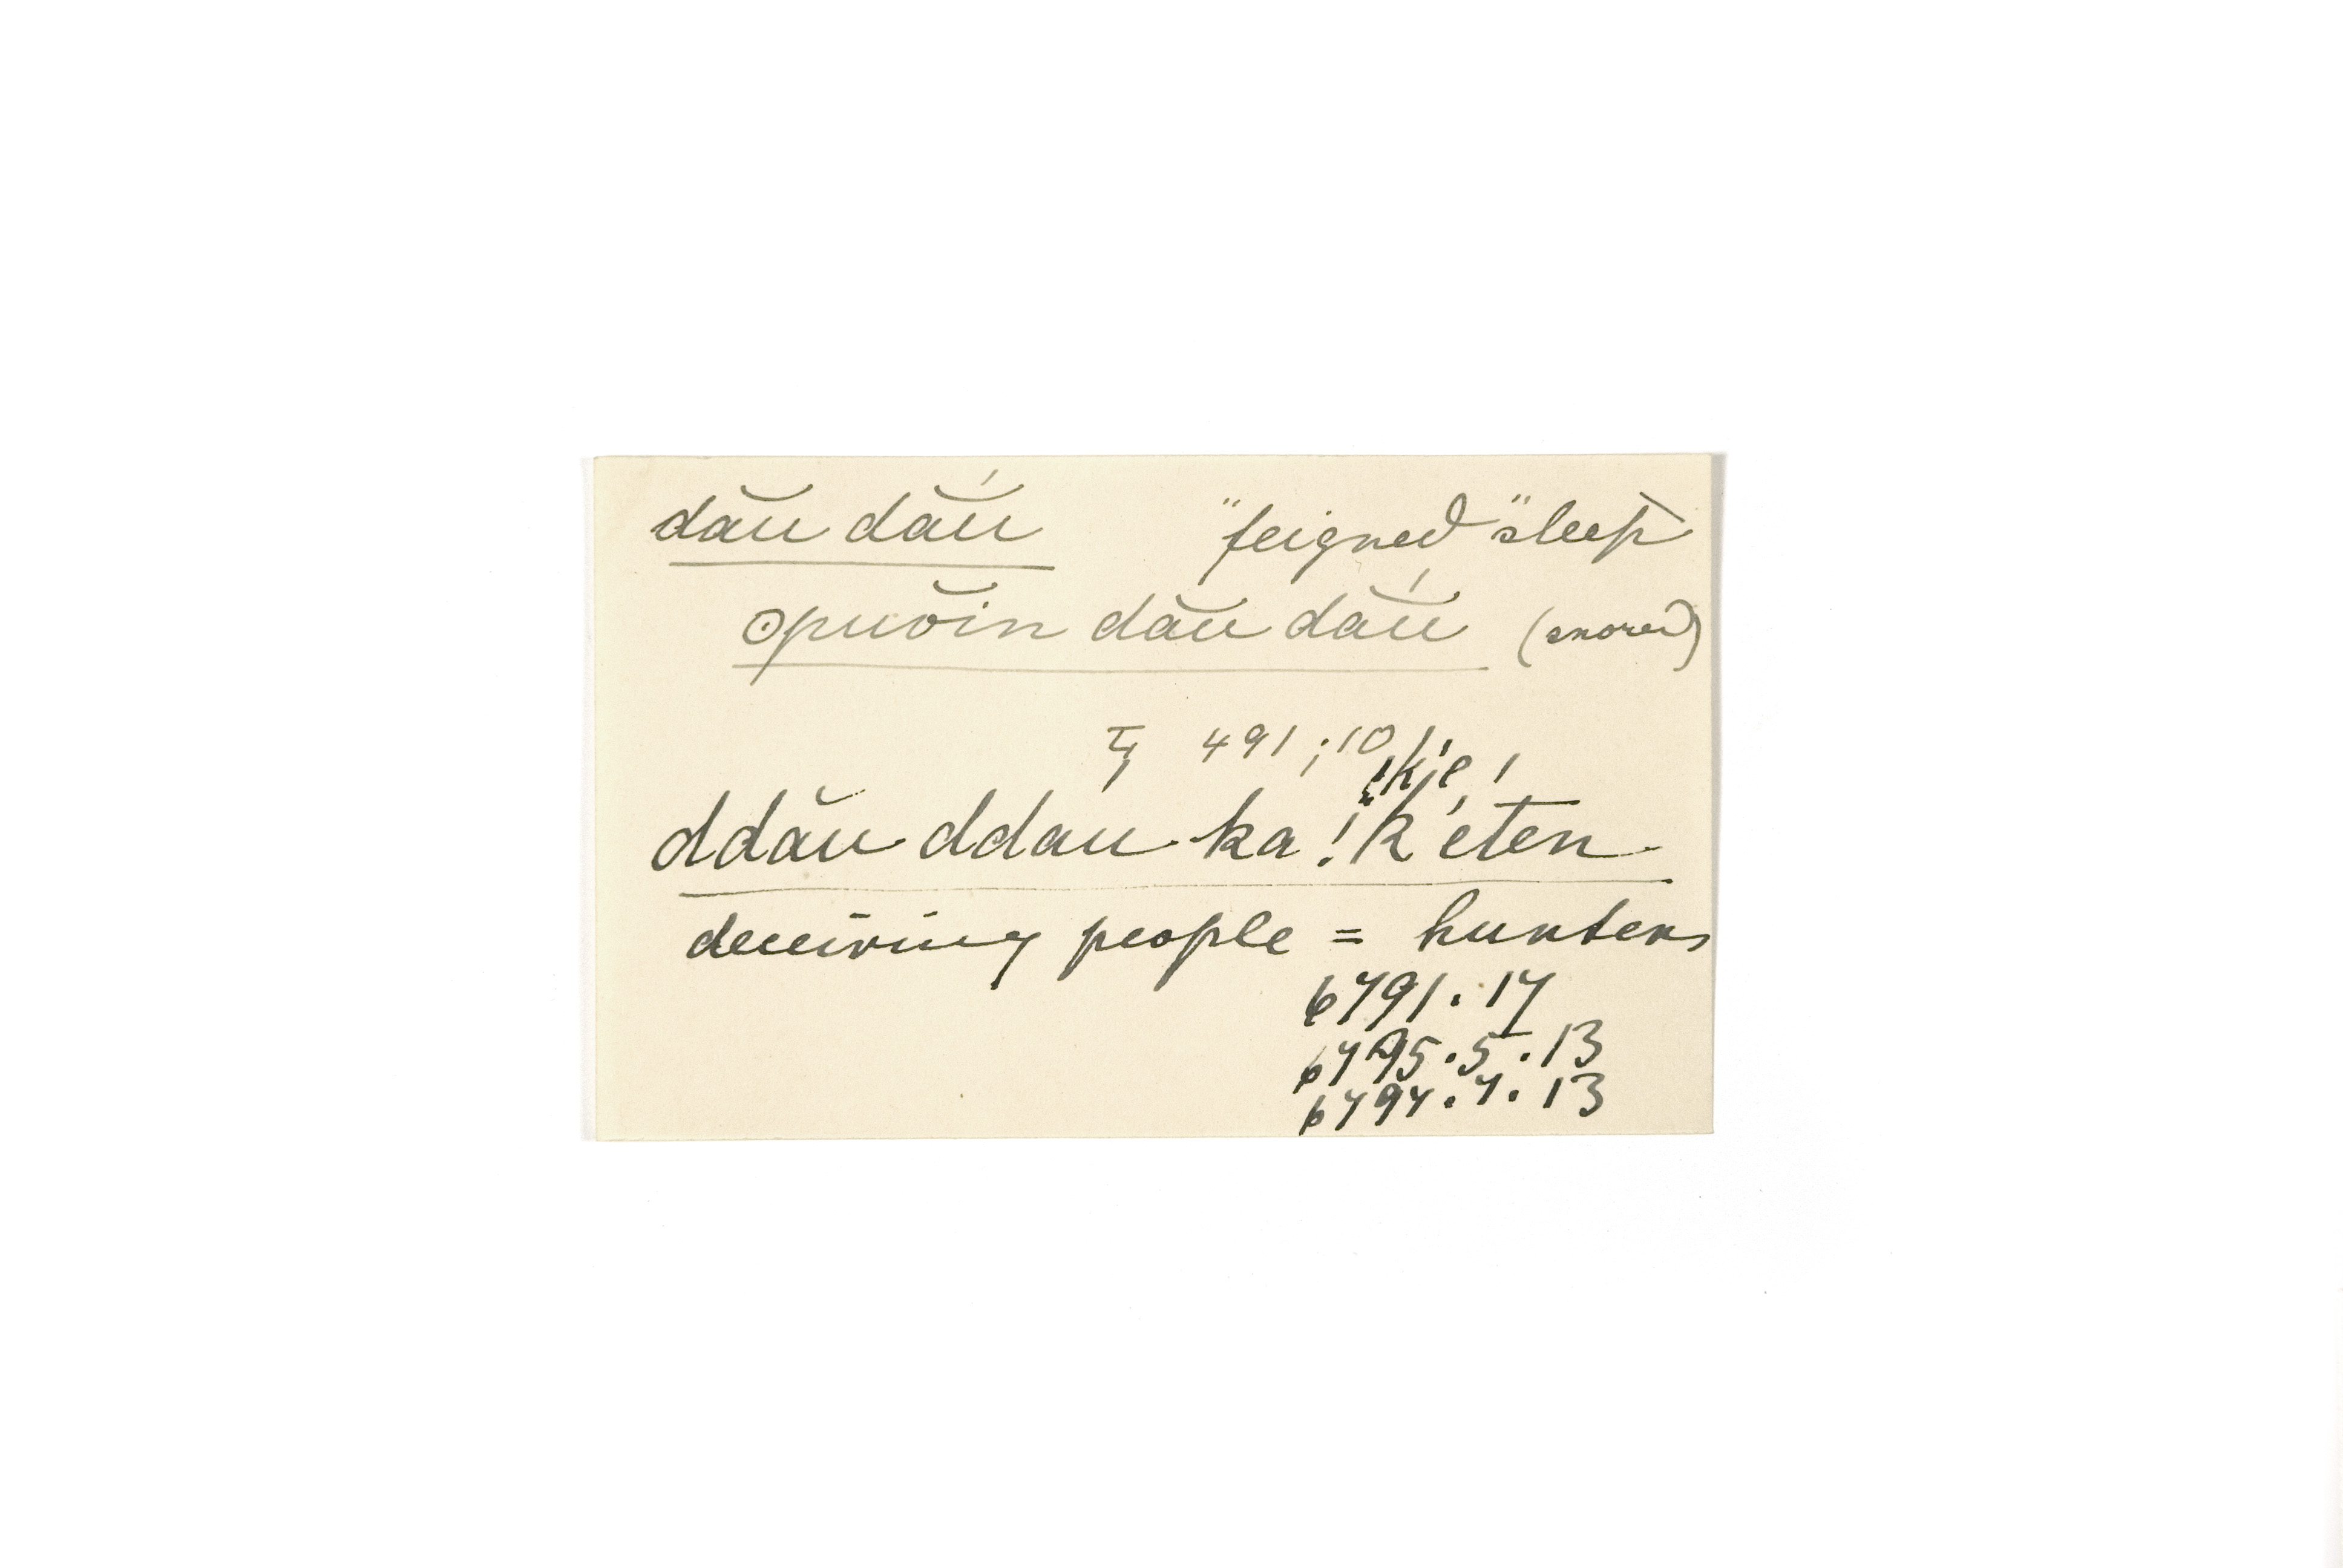 dău dắu "feigned" sleep
ʘpuŏin dău dắu (snored)
491;10
!kȷe!
ddău ddau ka !k'ēten
deceiving people = hunters
6791.17
6795.5.13
6797.7.13